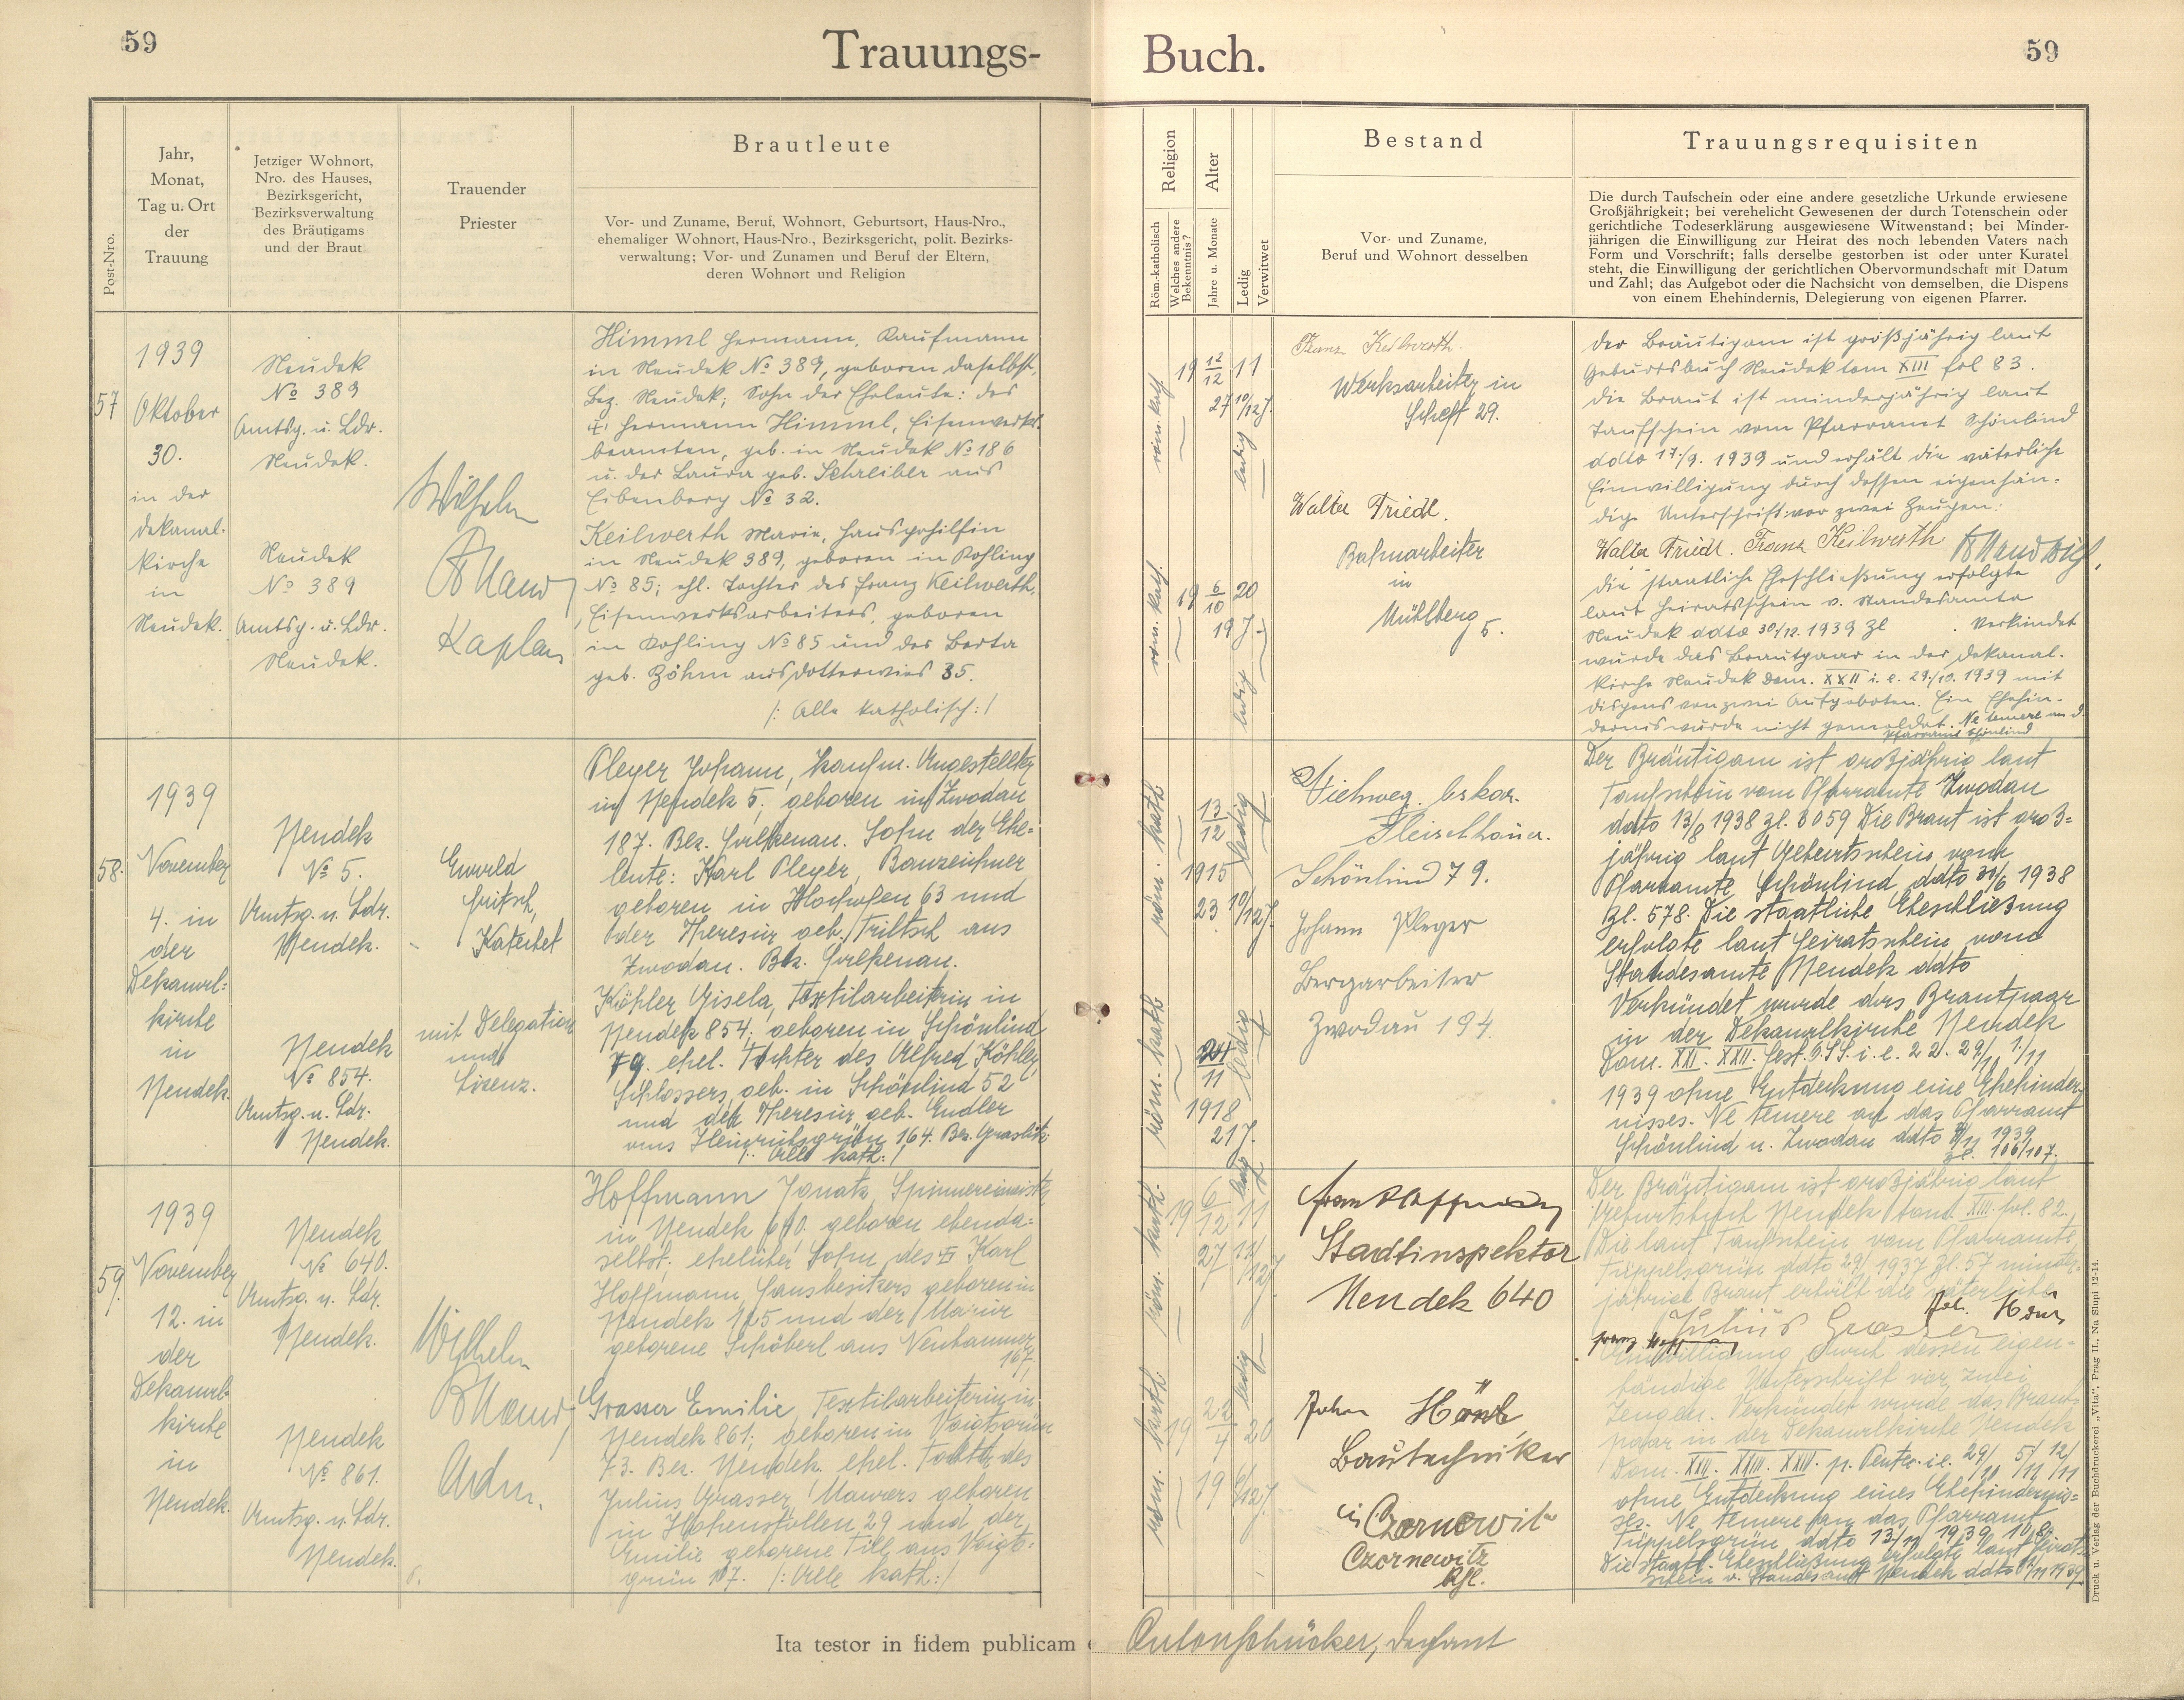 59
Trauungs-
Buch.
59
Post-Nro.
Jahr,
Monat,
Tag u. Ort
der
Trauung
Jetziger Wohnort,
Nro. des Hauses,
Bezirksgericht,
Bezirksverwaltung
des Bräutigams
und der Braut
Trauender
Priester
Brautleute
Vor- und Zuname, Beruf, Wohnort, Geburtsort, Haus-Nro.,
ehemaliger Wohnort, Haus-Nro., Bezirksgericht, polit. Bezirks-
verwaltung; Vor- und Zunamen und Beruf der Eltern,
deren Wohnort und Religion
Religion
Röm.-katholisch
Welches andere
Bekenntnis?
Alter
Jahre u. Monate
Ledig
Verwitwet
Bestand
Vor- und Zuname,
Beruf und Wohnort desselben
Trauungsrequisiten
Die durch Taufschein oder eine andere gesetzliche Urkunde erwiesene
Großjährigkeit; bei verehelicht Gewesenen der durch Totenschein oder
gerichtliche Todeserklärung ausgewiesene Witwenstand; bei Minder-
jährigen die Einwilligung zur Heirat des noch lebenden Vaters nach
Form und Vorschrift; falls derselbe gestorben ist oder unter Kuratel
steht, die Einwilligung der gerichtlichen Obervormundschaft mit Datum
und Zahl; das Aufgebot oder die Nachsicht von demselben, die Dispens
von einem Ehehindernis, Delegierung von eigenen Pfarrer.
57
1939
Oktober
30.
in der
Dekanal-
kirche
in
Neudek.
Neudek
No 389
Amtsg. u. Ldr.
Neudek.
Neudek
No 389
Amtsg. u. Ldr.
Neudek.
Wilhelm
Kaplan
Himml Hermann, Kaufmann
in Neudek No 389, geboren daselbst,
Bez. Neudek; Sohn der Eheleute: des
Hermann Himml, Eisenwerks-
beamten, geb. in Neudek No 186
u. der Laura geb. Schreiber aus
Eibenberg No 32.
Keilwerth Marie, Hausgehilfin
in Neudek 389, geboren in Kohling
No 85; ehl. Tochter des Franz Keilwerth,
Eisenwerksarbeiters, geboren
in Kohling No 85 und der Berta
geb. Böhm aus Dotterwies 35.
/: Alle katholisch :/
röm. kath.
19 12/12 11
27 10/12 J.
ledig
röm. kath.
19 6/10 20
19 J.
ledig
Franz Keilwerth
Werksarbeiter in
Schft 29.
Walter Friedl.
Bahnarbeiter
in
Mühlberg
5.
Der Bräutigam ist großjährig laut
Geburtsbuch Neudek tom XIII fol 83.
Die Braut ist minderjährig laut
Taufschein vom Pfarramt Schönlind
ddto 17./9. 1939 und erhält die väterliche
Einwilligung durch dessen eigenhän-
dige Unterschrift vor zwei Zeugen:
Walter Friedl. Franz Keilwerth
die staatliche Eheschließung erfolgte
laut Heiratsschein v. Standesamte
Neudek ddto 30/12. 1939 Zl . Verkündet
wurde das Brautpaar in der Dekanal-
kirche Neudek Dom. XXII i. e. 29./10. 1939 mit
Dispens von zwei Aufgeboten. Ein Ehehin-
dernis wurde nicht gemeldet. Ne temere an d.
Pfarramt Schönlind
58.
1939
November
4. in
der
Dekanal-
kirche
in
Neudek.
Neudek
No 5.
Amtsg. u. Ldr.
Neudek.
Neudek
No 854.
Amtsg. u. Ldr.
Neudek.
Ewald
Fritsch,
Katechet
mit Delegation
und
Lizenz.
Pleyer Johann, kaufm. Angestellter
in Neudek 5; geboren in Zwodau
187. Bez. Falkenau. Sohn der Ehe-
leute: Karl Pleyer, Bauzeichner
geboren in Hochofen 63 und
der Theresia geb. Triltsch aus
Zwodau. Bez. Falkenau.
Köhler Gisela, Textilarbeiterin in
Neudek 854; geboren in Schönlind
79. ehel. Tochter des Alfred Köhler,
Schlossers, geb. in Schönlind 52
und der Theresia geb. Endler
aus Heinrichsgrün 164. Bez. Graslitz
/: Alle kath. :/
röm. kath
13
12
1915
23 10/12 J.
ledig
röm. kath
11
1918
21 J.
ledig
Viehweg Oskar.
Fleischhauer.
Schönlind 79.
Johann Pleyer
Bergarbeiter
Zwodau 194.
Der Bräutigam ist großjährig laut
Taufschein vom Pfarramte Zwodau
ddto 13/8 1938 Zl. 3059 Die Braut ist groß-
jährig laut Geburtsschein vom
Pfarramte Schönlind ddto 30/6 1938
Zl. 578. Die staatliche Eheschließung
erfolgte laut Heiratsschein vom
Standesamte Neudek ddto
Verkündet wurde das Brautpaar
in der Dekanalkirche Neudek
Dom. XXI. XXII. fest. O.SS. i. e. 22. 29/10 1./11
1939 ohne Entdeckung eine Ehehinder-
nisses. Ne temere an das Pfarramt
Schönlind u. Zwodau ddto 1939
Zl. 106/107.
59.
1939
November
12. in
der
Dekanal-
kirche
in
Neudek.
Neudek
No 640.
Amtsg. u. Ldr.
Neudek.
Neudek
No 861.
Amtsg. u. Ldr.
Neudek.
Wilhelm
Adm.
Hoffmann Ignatz, Spinnereimeister
in Neudek 640. geboren ebenda-
selbst; ehelicher Sohn des Karl
Hoffmann, Hausbesitzers geboren in
Neudek 125 und der Maria
geborene Schöberl aus Neuhammer
167.
Grasser Emilie, Textilarbeiterin in
Neudek 861; geboren in Voigtsgrün
73. Bez. Neudek. ehel. Tochter des
Julius Grasser, Maurers geboren
in Hohenstollen 29 und der
Emilie geborene Till aus Voigts-
grün 107. /: Alle kath :/
röm. kath.
19 6/12 11
27 11/12 J.
ledig
röm. kath.
19 22/4 20
19 J.
ledig
Franz Hoffmann
Stadtinspektor
Neudek 640
Bautechniker
in Czernowitz
Czernowitz
Der Bräutigam ist großjährig laut
Geburtsbuch Neudek tom. XIII. fol. 82.
Die laut Taufschein vom Pfarramte
Trüppelsgrün ddto 1937 Zl. 57 minder-
jährige Braut erhält die väterliche
Julius Grasser
Einwilligung durch dessen eigen-
händige Unterschrift vor zwei
Zeugen. Verkündet wurde das Braut-
paar in der Dekanalkirche Neudek
Dom. XXII. XXIII. XXIV. p. Pentec. i. e. 29/10 5/11 12/11
ohne Entdeckung eines Ehehindernis-
ses. Ne temere an das Pfarramt
Trüppelsgrün ddto 13/11 1939 108.
Die staatl. Eheschließung erfolgte laut Heirats-
schein v. Standesamt Neudek ddto 1939
Ita testor in fidem publicam
Anton Schücker, Dechant
Druck u. Verlag der Buchdruckerei „Vita“, Prag II., Na Slupi 12-14.